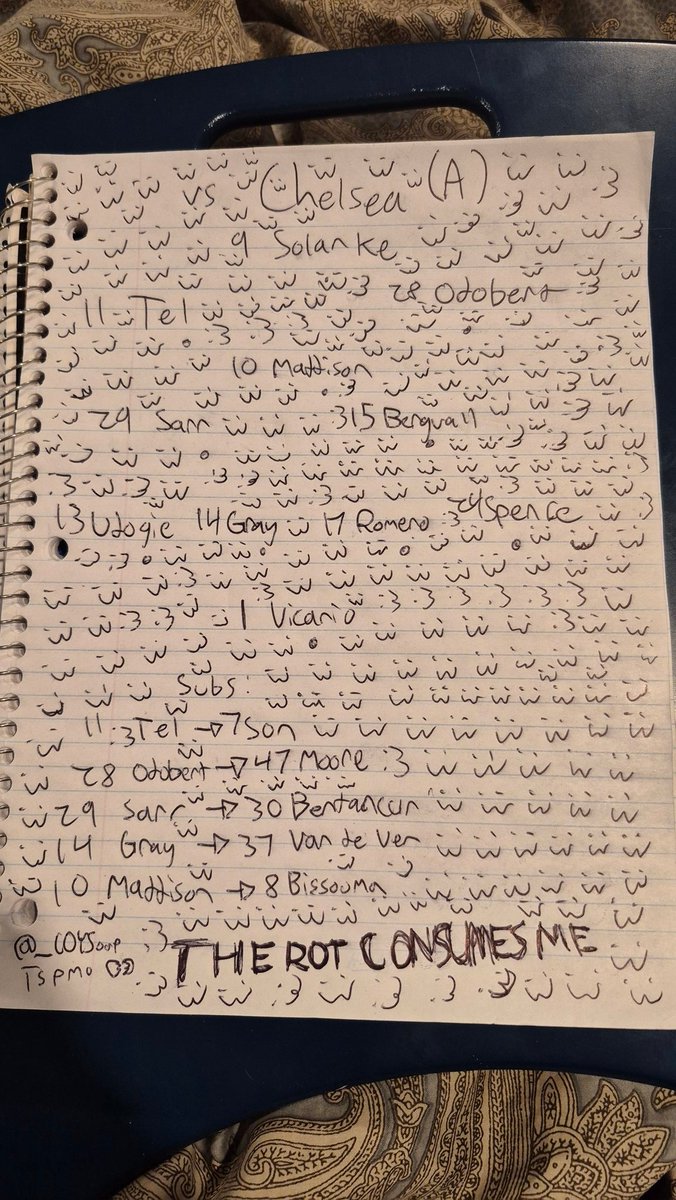 vs Chelsea (A)
9 Solanke
11 Tel 28 Odobert
10 Mattison
29 Sarr 15 Bergvall
13 Udogie 14 Gray 17 Romero 24 Spence
1 Vicario
Subs:
11 :3 Tel → 7 Son
28 Odobert → 47 Moore :3
29 Sarr → 30 Bentancur
14 Gray → 37 Van de Ven
10 Mattison → 8 Bissouma
@_COYSoup ;3 THE ROT CONSUMES ME
TSPMO